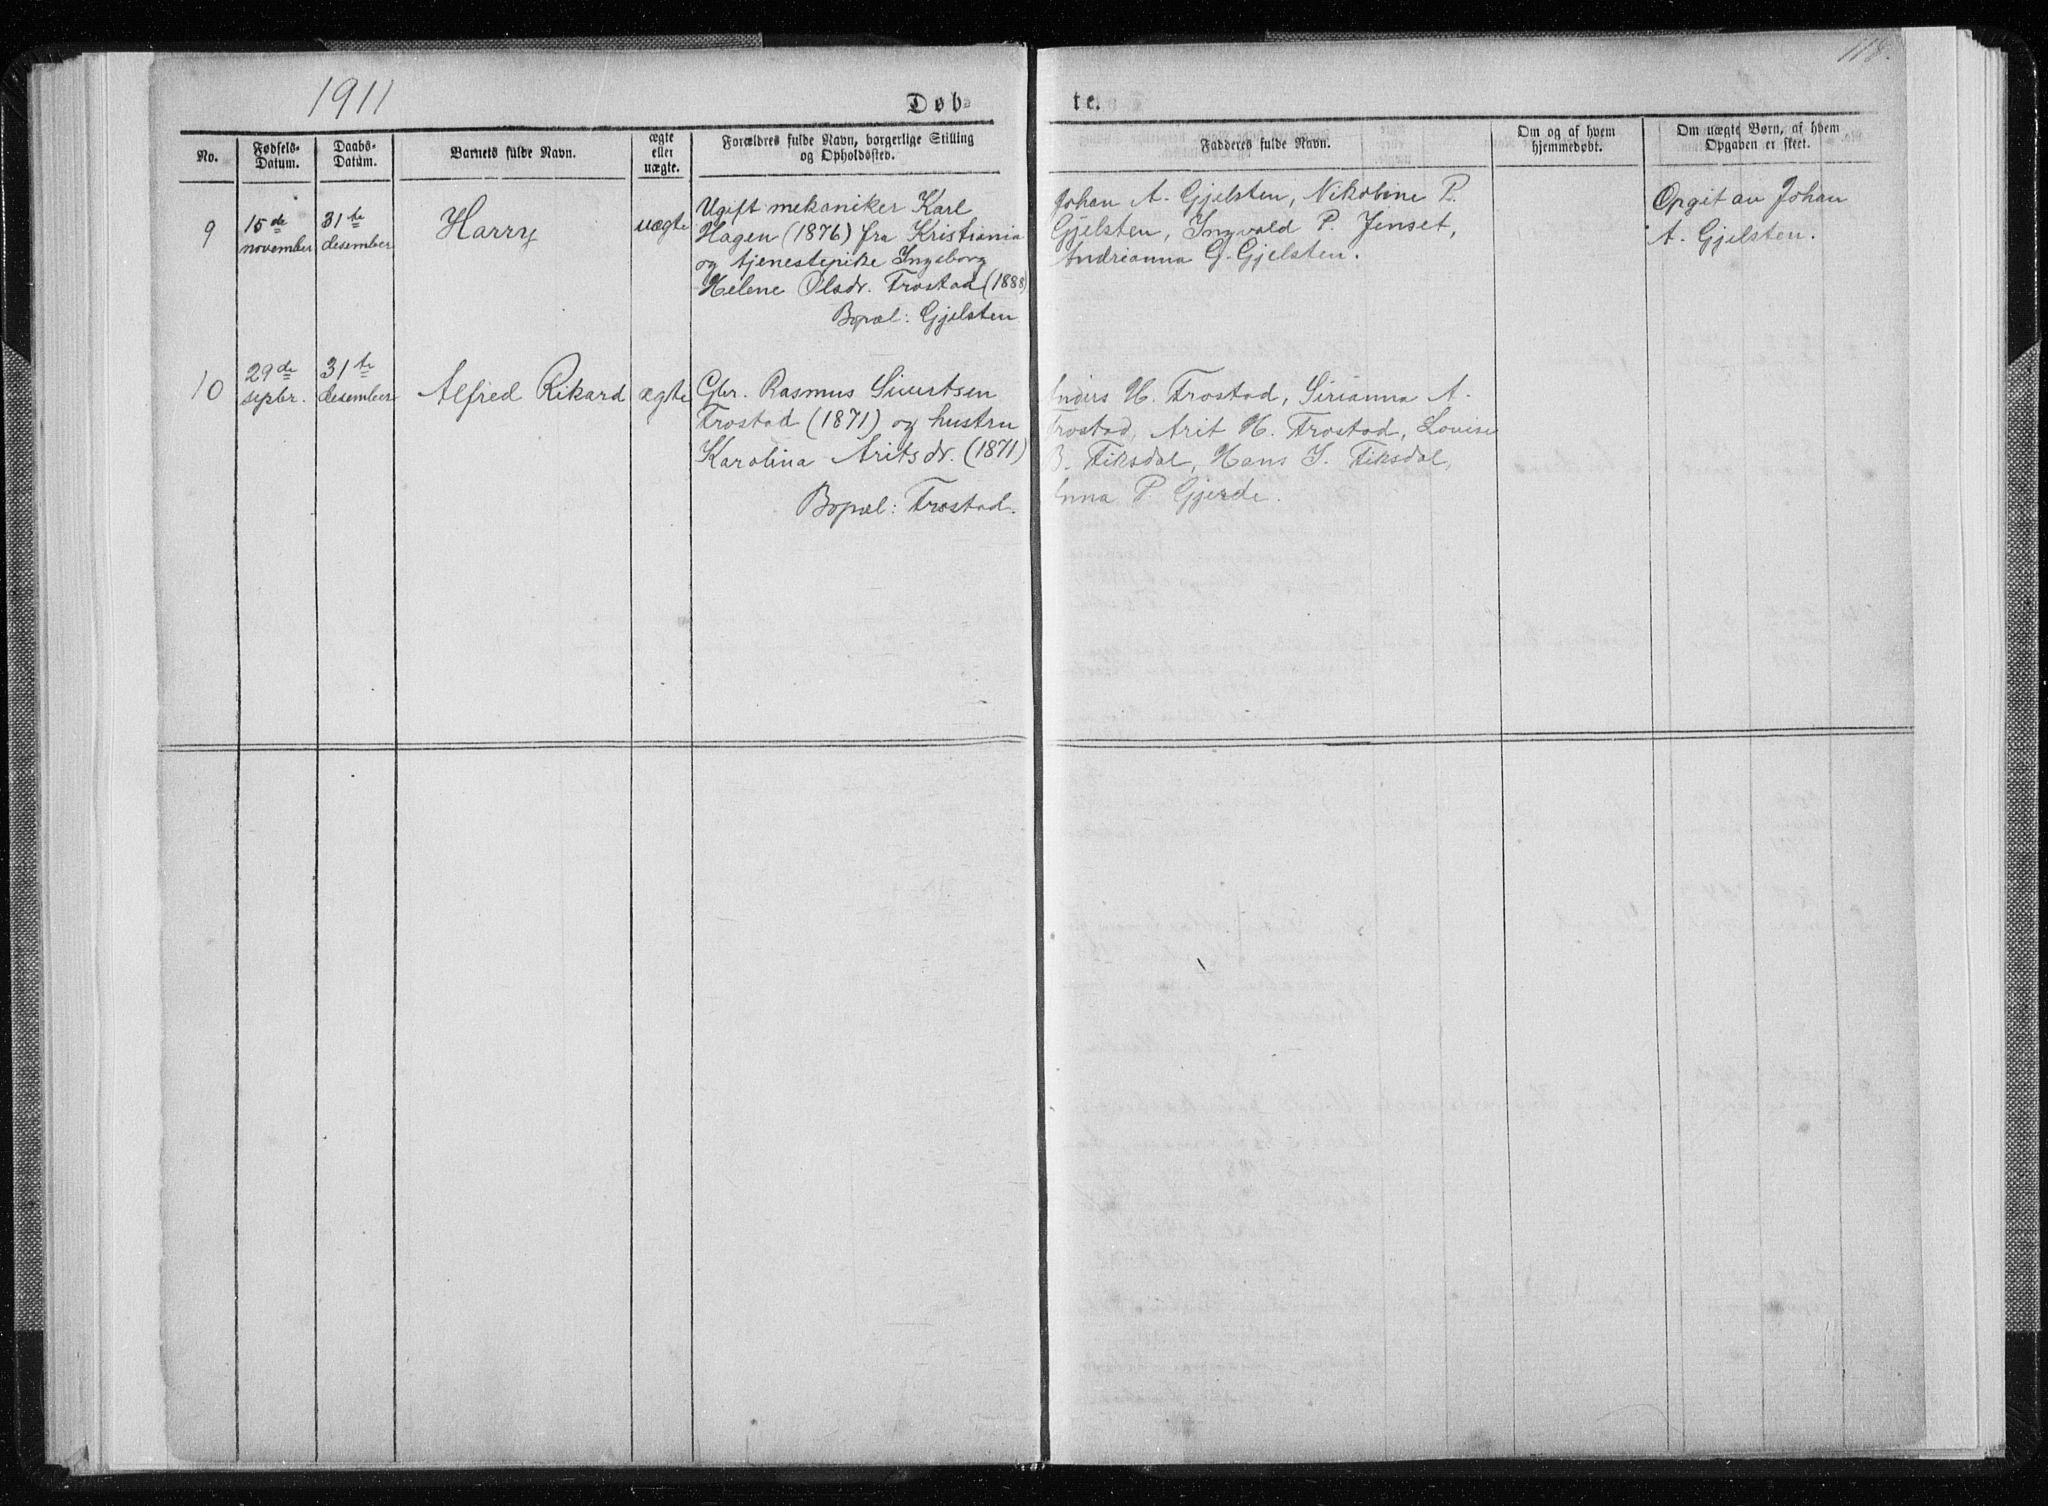 118.
1911
Døb-
te.
No.
Fødsels-
Datum.
Daabs-
Datum.
Barnets fulde Navn.
ægte
eller
uægte.
Forældres fulde Navn, borgerlige Stilling
og Opholdssted.
Fadderes fulde Navn.
Om og af hvem
hjemmedøbt.
Om uægte Børn, af hvem
Opgaven er skeet.
9
15de
november
31te
desember
Harry
uægte
Ugift mekaniker Karl
Hagen (1876) fra Kristiania
og tjenestepike Ingeborg
Helene Olsdr. Frostad (1888)
Bopæl: Gjelsten
Johan A. Gjelsten, Nikoline P.
Gjelsten, Ingvald P. Jenset,
Andrianna G. Gjelsten.
Opgit av Johan
A. Gjelsten.
10
29de
septbr.
31te
desember
Alfred Rikard
ægte
Gbr. Rasmus Sivertsen
Frostad (1871) og hustru
Karolina Aritsdr. (1871)
Bopæl: Frostad.
Anders H. Frostad, Sirianna A.
Frostad, Arit H. Frostad, Louise
B. Fiksdal, Hans I. Fiksdal,
Anna P. Gjerde.